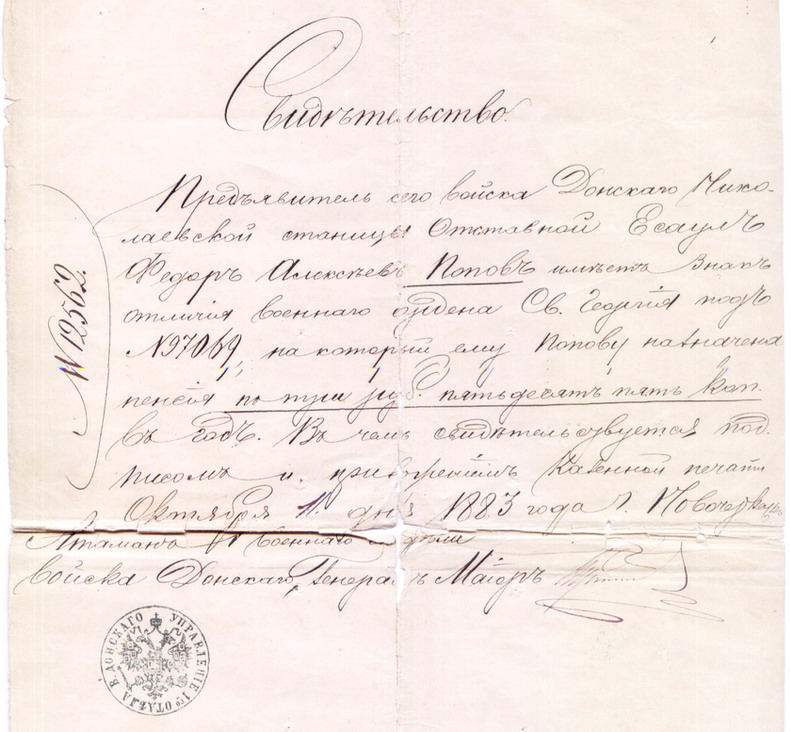 Свидѣтельство.
Предъявитель сего войска Донскаго Нико-
лаевской станицы Отставной Есаулъ
Федоръ Алексѣевъ Поповъ имѣетъ Знакъ
отличія военнаго ордена Св. Георгія подъ
№97069, на который ему Попову назначена
пенсія по три руб. пятьдесятъ пять коп.
въ годъ. Въ чемъ свидѣтельствуется под-
писомъ и приложеніемъ Казенной печати
Октября 11 дня 1883 года г. Новочеркаскъ
Атаманъ 1 военнаго отдѣла
Войска Донскаго, Генералъ Маіоръ
№ 12562.
УПРАВЛЕНІЕ 1ГО ОТДѢЛА В. ДОНСКАГО